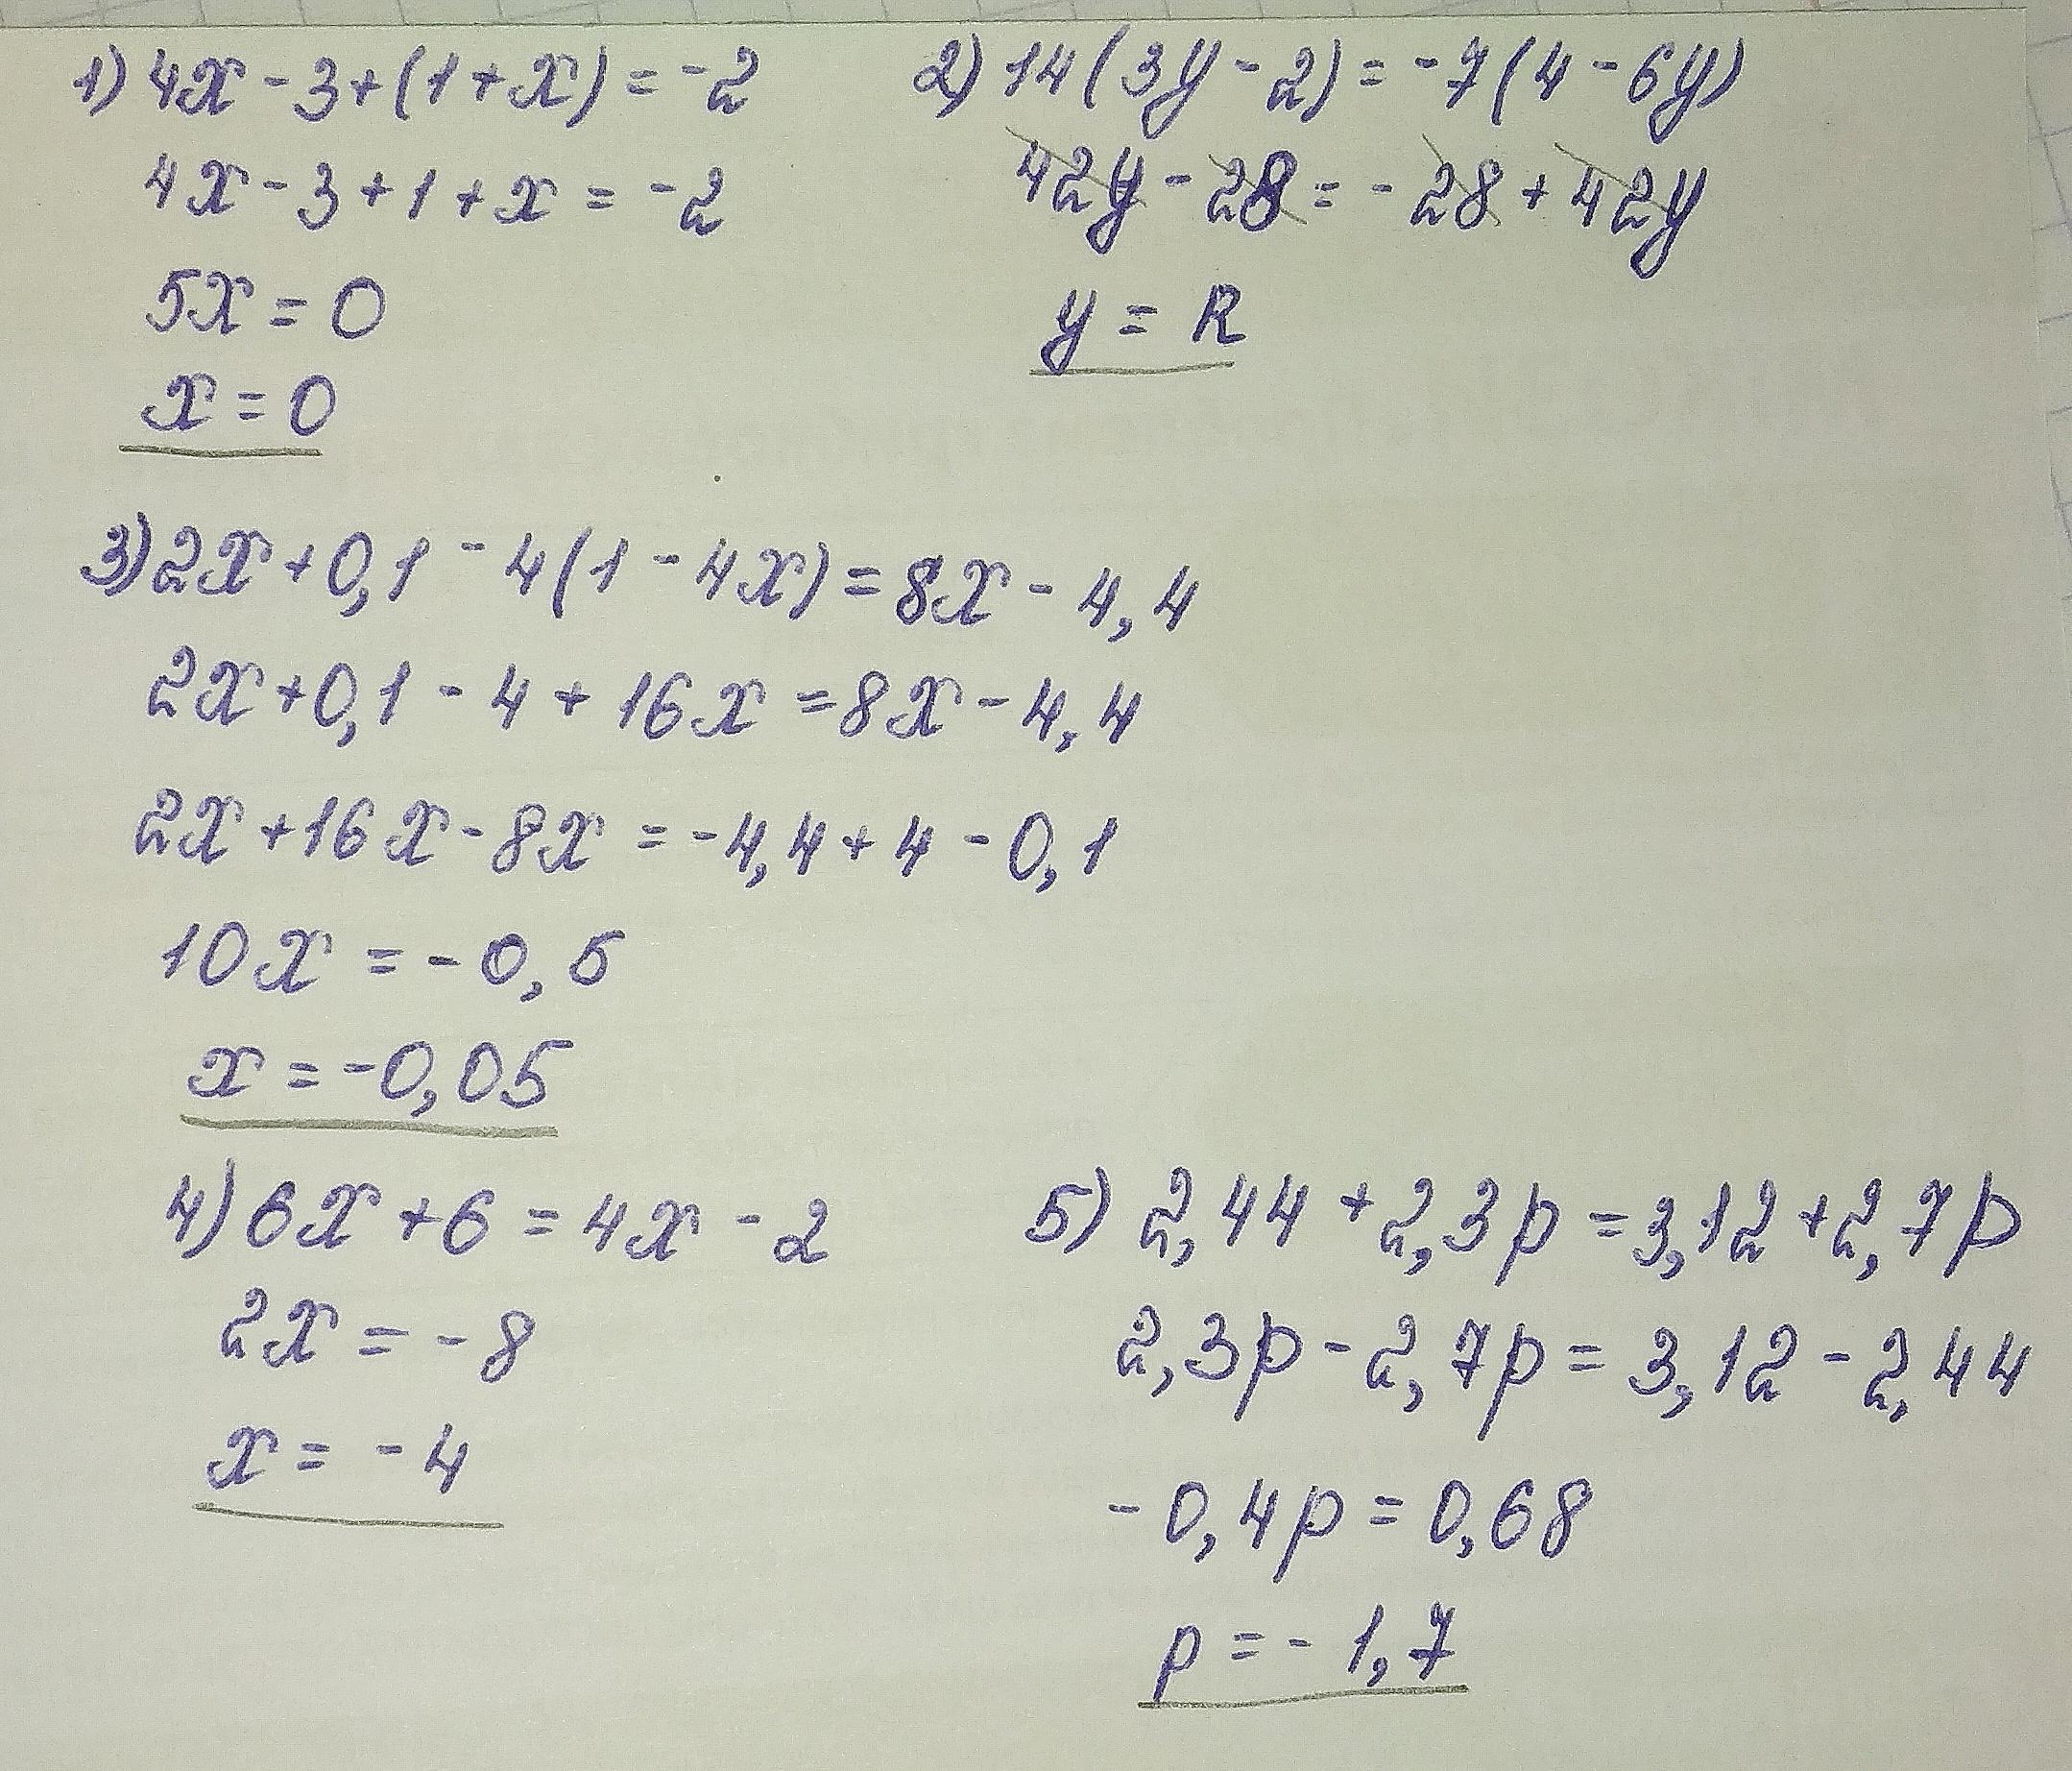 1) 4x - 3 + (1 + x) = -2
4x - 3 + 1 + x = -2
5x = 0
x = 0
2) 14(3y - 2) = -7(4 - 6y)
42y - 28 = -28 + 42y
y = R
3) 2x + 0,1 - 4(1 - 4x) = 8x - 4,4
2x + 0,1 - 4 + 16x = 8x - 4,4
2x + 16x - 8x = -4,4 + 4 - 0,1
10x = -0,5
x = -0,05
4) 6x + 6 = 4x - 2
2x = -8
x = -4
5) 2,44 + 2,3p = 3,12 + 2,7p
2,3p - 2,7p = 3,12 - 2,44
-0,4p = 0,68
p = -1,7